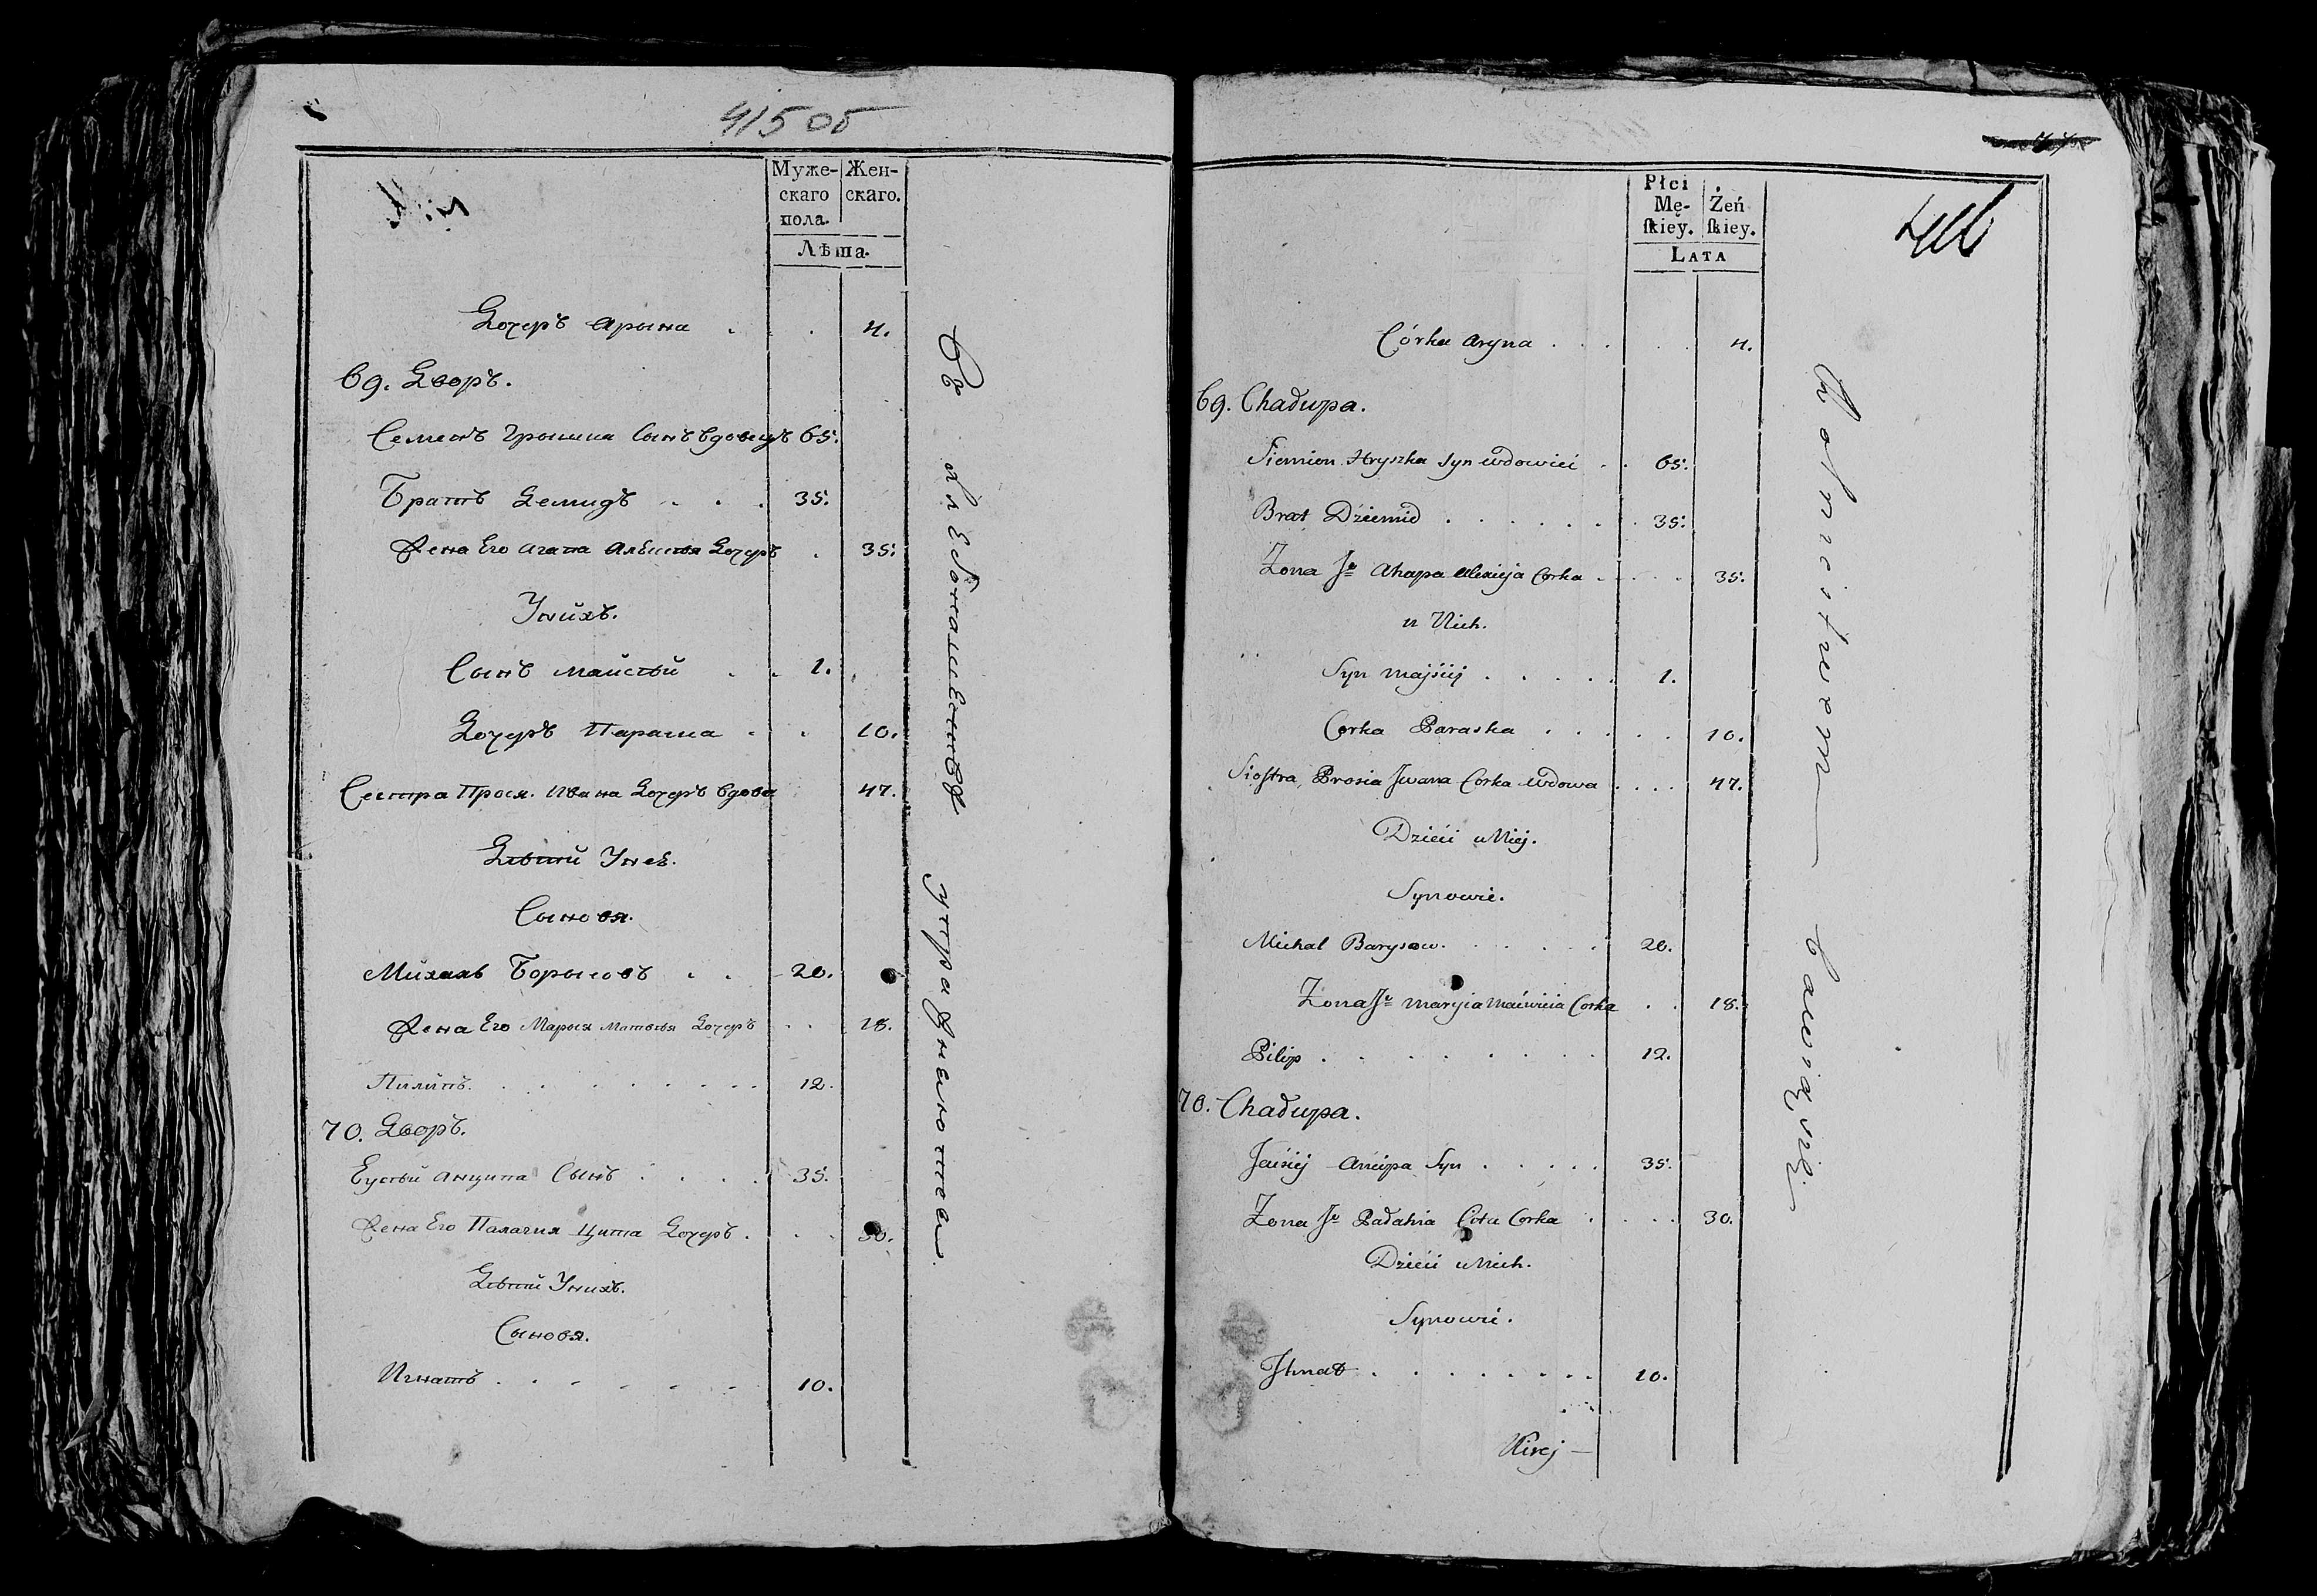 415 об
Муже-
скаго
пола.
Жен-
скаго.
Лѣта.
Дочеръ Арына . . . 4.
69. Дворъ.
Семенъ Грышка Сынъ вдовецъ 65.
Братъ Демидъ . . . 35.
Жена Его Агапа Алексея Дочеръ . 35.
Унихъ.
Сынъ Майсѣй . . 1.
Дочеръ Параска . . 10.
Сестра Прося Ивана Дочеръ вдова 47.
Дѣти Унеѣ.
Сыновя.
Михалъ Борысовъ . . 20.
Жена Его Марыя Матвѣя Дочеръ . . 18.
Пилипъ. . . . . . . . 12.
70. Дворъ.
Еусѣй Анципа Сынъ . . . . 35.
Жена Его Палагия Цита Дочеръ . . . 30.
Дѣти Унихъ.
Сыновя.
Игнатъ . . . . . . 10.
Въ хлебопашествѣ упражнаютса
416
Płci
Mę-
ſkiey.
Żeń
ſkiey.
LATA
Córka Aryna . . . . . 4.
69. Chadupa.
Siemion Hryszka Syn wdowiec . . 65.
Brat Dziemid . . . . . . . 35.
Zona Je Ahapa Alexieja Corka . . . . 35.
u Nich.
Syn Majsiej . . . . . 1.
Corka Paraska . . . . . 10.
Sioſtra Prosia Jwana Corka wdowa . . . . 47.
Dzieci u Niej.
Synowie.
Michał Barysow. . . . . . 20.
Zona Je Maryia Maćwieia Corka . . 18.
Pilip . . . . . . . . 12.
70. Chadupa.
Jausiej Ancipa Syn . . . . . 35.
Zona Je Pałahia Cita Corka . . . . 30.
Dzieci u Nich.
Synowie.
Jhnat . . . . . . . . 10.
Rolnictwem bawią się